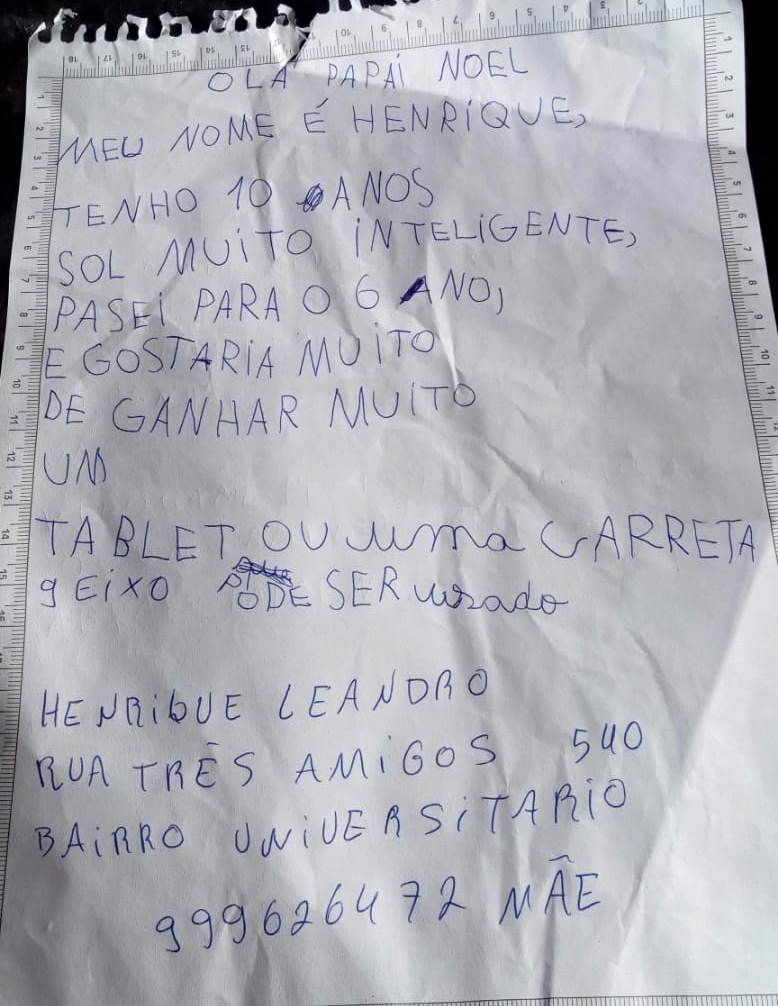 OLÁ PAPAI NOEL
MEU NOME É HENRIQUE,
TENHO 10 ANOS
SOL MUITO INTELIGENTE,
PASEI PARA O 6 ANO,
E GOSTARIA MUITO
DE GANHAR MUITO
UM
TABLET OU uma CARRETA
9 EIXO PODE SER usado
HENRIQUE LEANDRO
RUA TRÊS AMIGOS 540
BAIRRO UNIVERSITARIO
999626472 MÃE